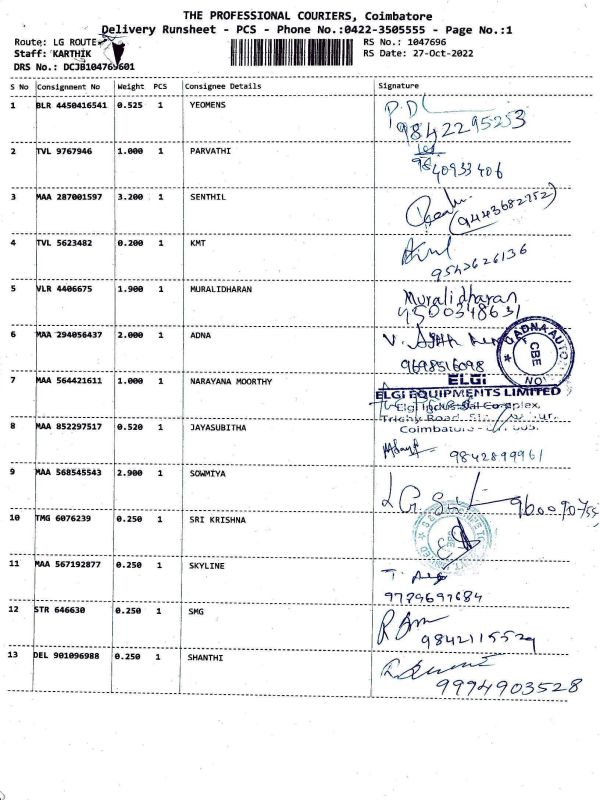 THE PROFESSIONAL COURIERS, Coimbatore
Delivery Runsheet - PCS - Phone No.:0422-3505555 - Page No.:1
Route: LG ROUTE RS No.: 1047696
Staff: KARTHIK RS Date: 27-Oct-2022
DRS No.: DCJB104769601
S No Consignment No Weight PCS Consignee Details Signature
1 BLR 4450416541 0.525 1 YEOMENS P.D
9842295253
2 TVL 9767946 1.000 1 PARVATHI
9840933406
3 MAA 287001597 3.200 1 SENTHIL
(9443682752)
4 TVL 5623482 0.200 1 KMT
9543626136
5 VLR 4406675 1.900 1 MURALIDHARAN Muralidharan
9500348631
6 MAA 294056437 2.000 1 ADNA V.
9698516098
ADNA AUTO
CBE
7 MAA 564421611 1.000 1 NARAYANA MOORTHY ELGi
ELGI EQUIPMENTS LIMITED
Elgi Industrial Complex,
Trichy Road,
Coimbatore
8 MAA 852297517 0.520 1 JAYASUBITHA
9842899961
9 MAA 568545543 2.900 1 SOWMIYA
10 TMG 6076239 0.250 1 SRI KRISHNA
11 MAA 567192877 0.250 1 SKYLINE T.
9779697684
12 STR 646630 0.250 1 SMG
9842115529
13 DEL 901096988 0.250 1 SHANTHI
9994903528